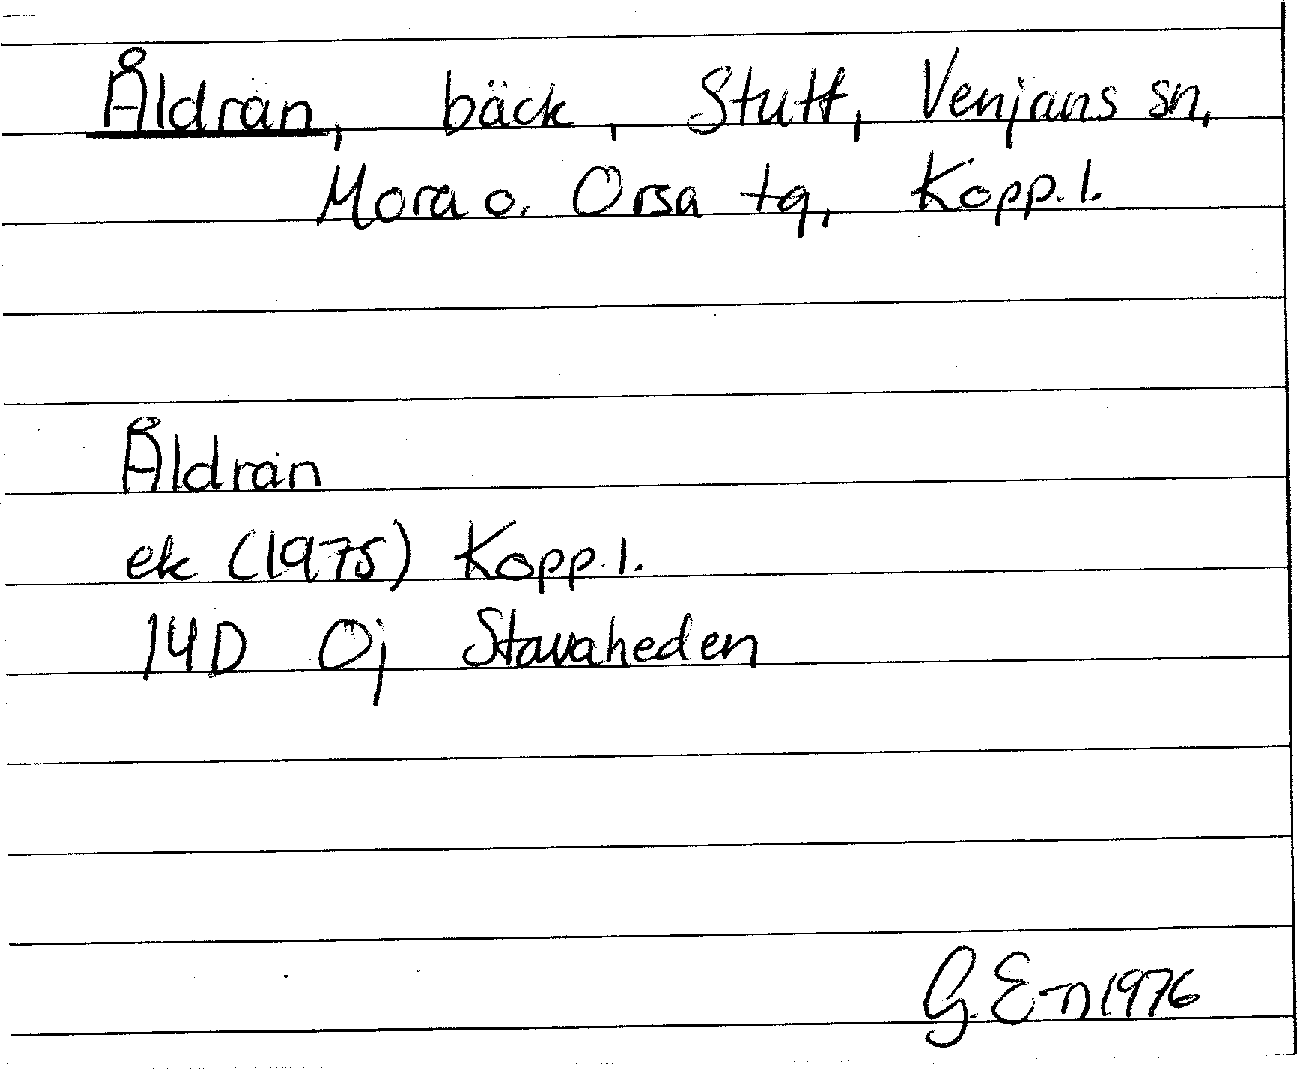 Åldrån, bäck, Stutt, Venjans sn,
Mora o. Orsa tg, Kopp. l.
Åldrån
ek (1975) Kopp. l.
14D 0j Stavaheden
G. E-n 1976